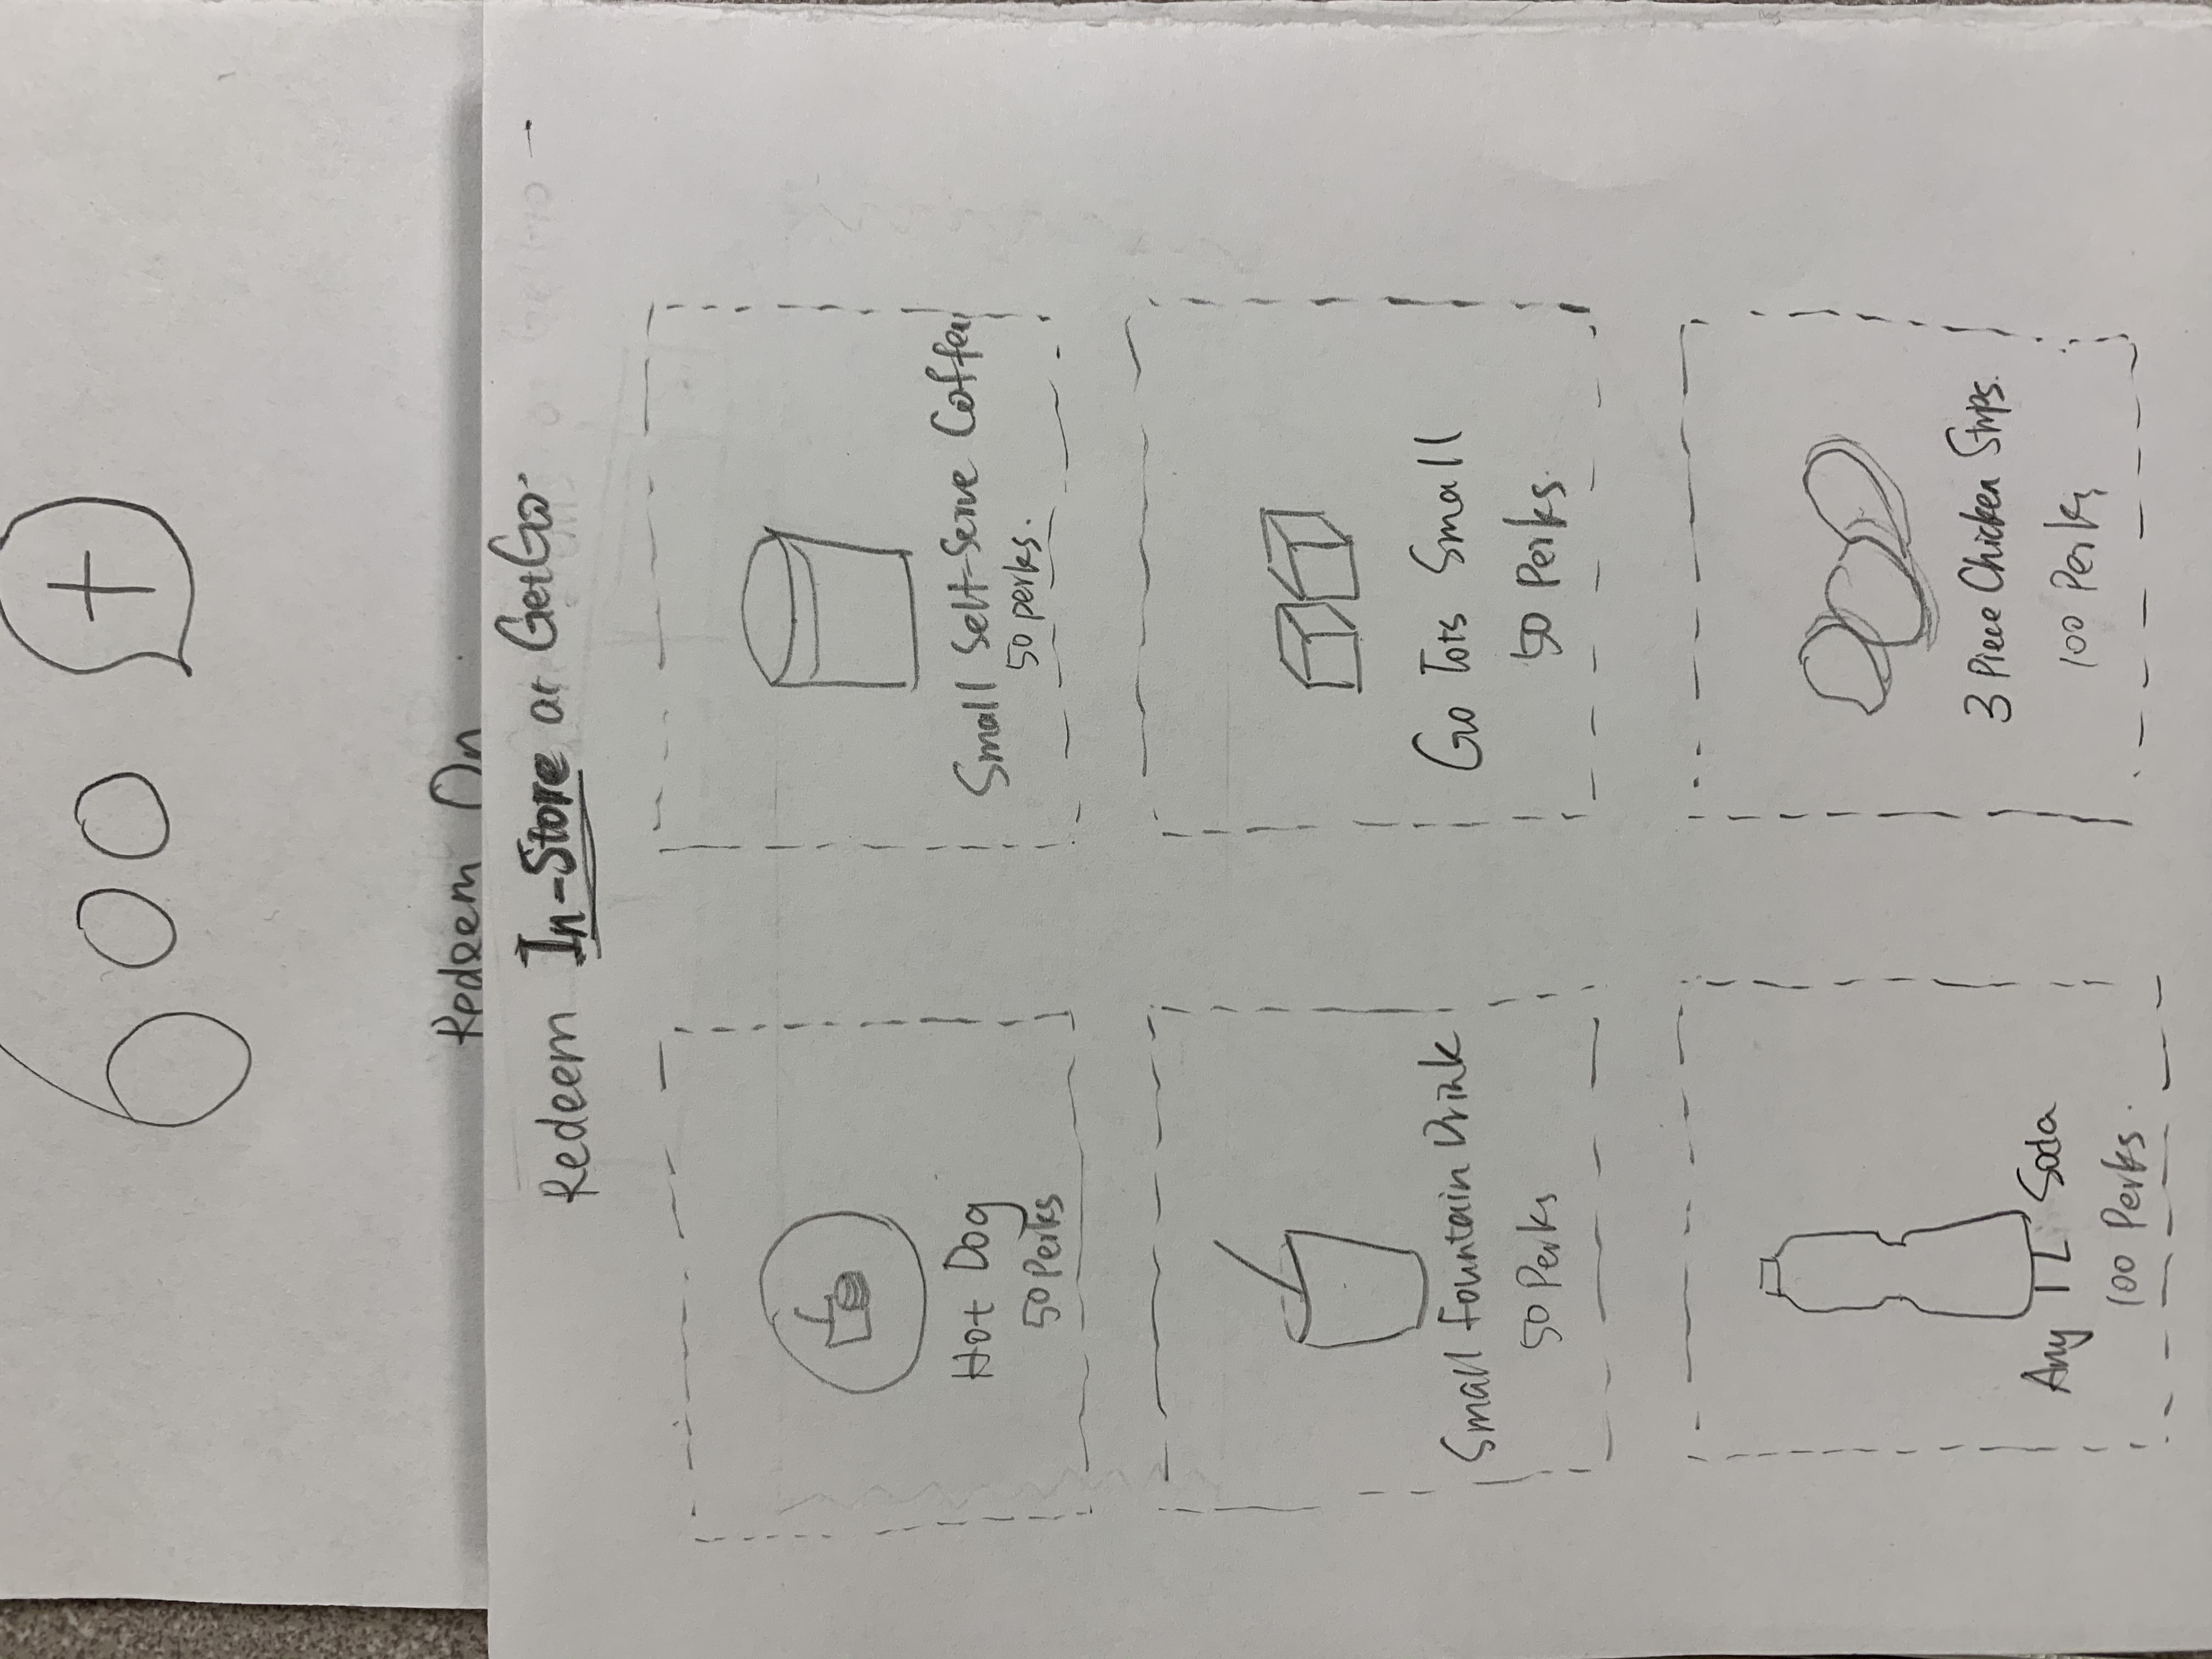 600 +
Redeem On
Redeem In-Store at GetGo.
Hot Dog
50 Perks
Small Self-Serve Coffee
50 perks.
Small Fountain Drink
50 Perks
Go Tots Small
50 Perks.
Any 1L Soda
100 Perks.
3 Piece Chicken Strips.
100 Perks